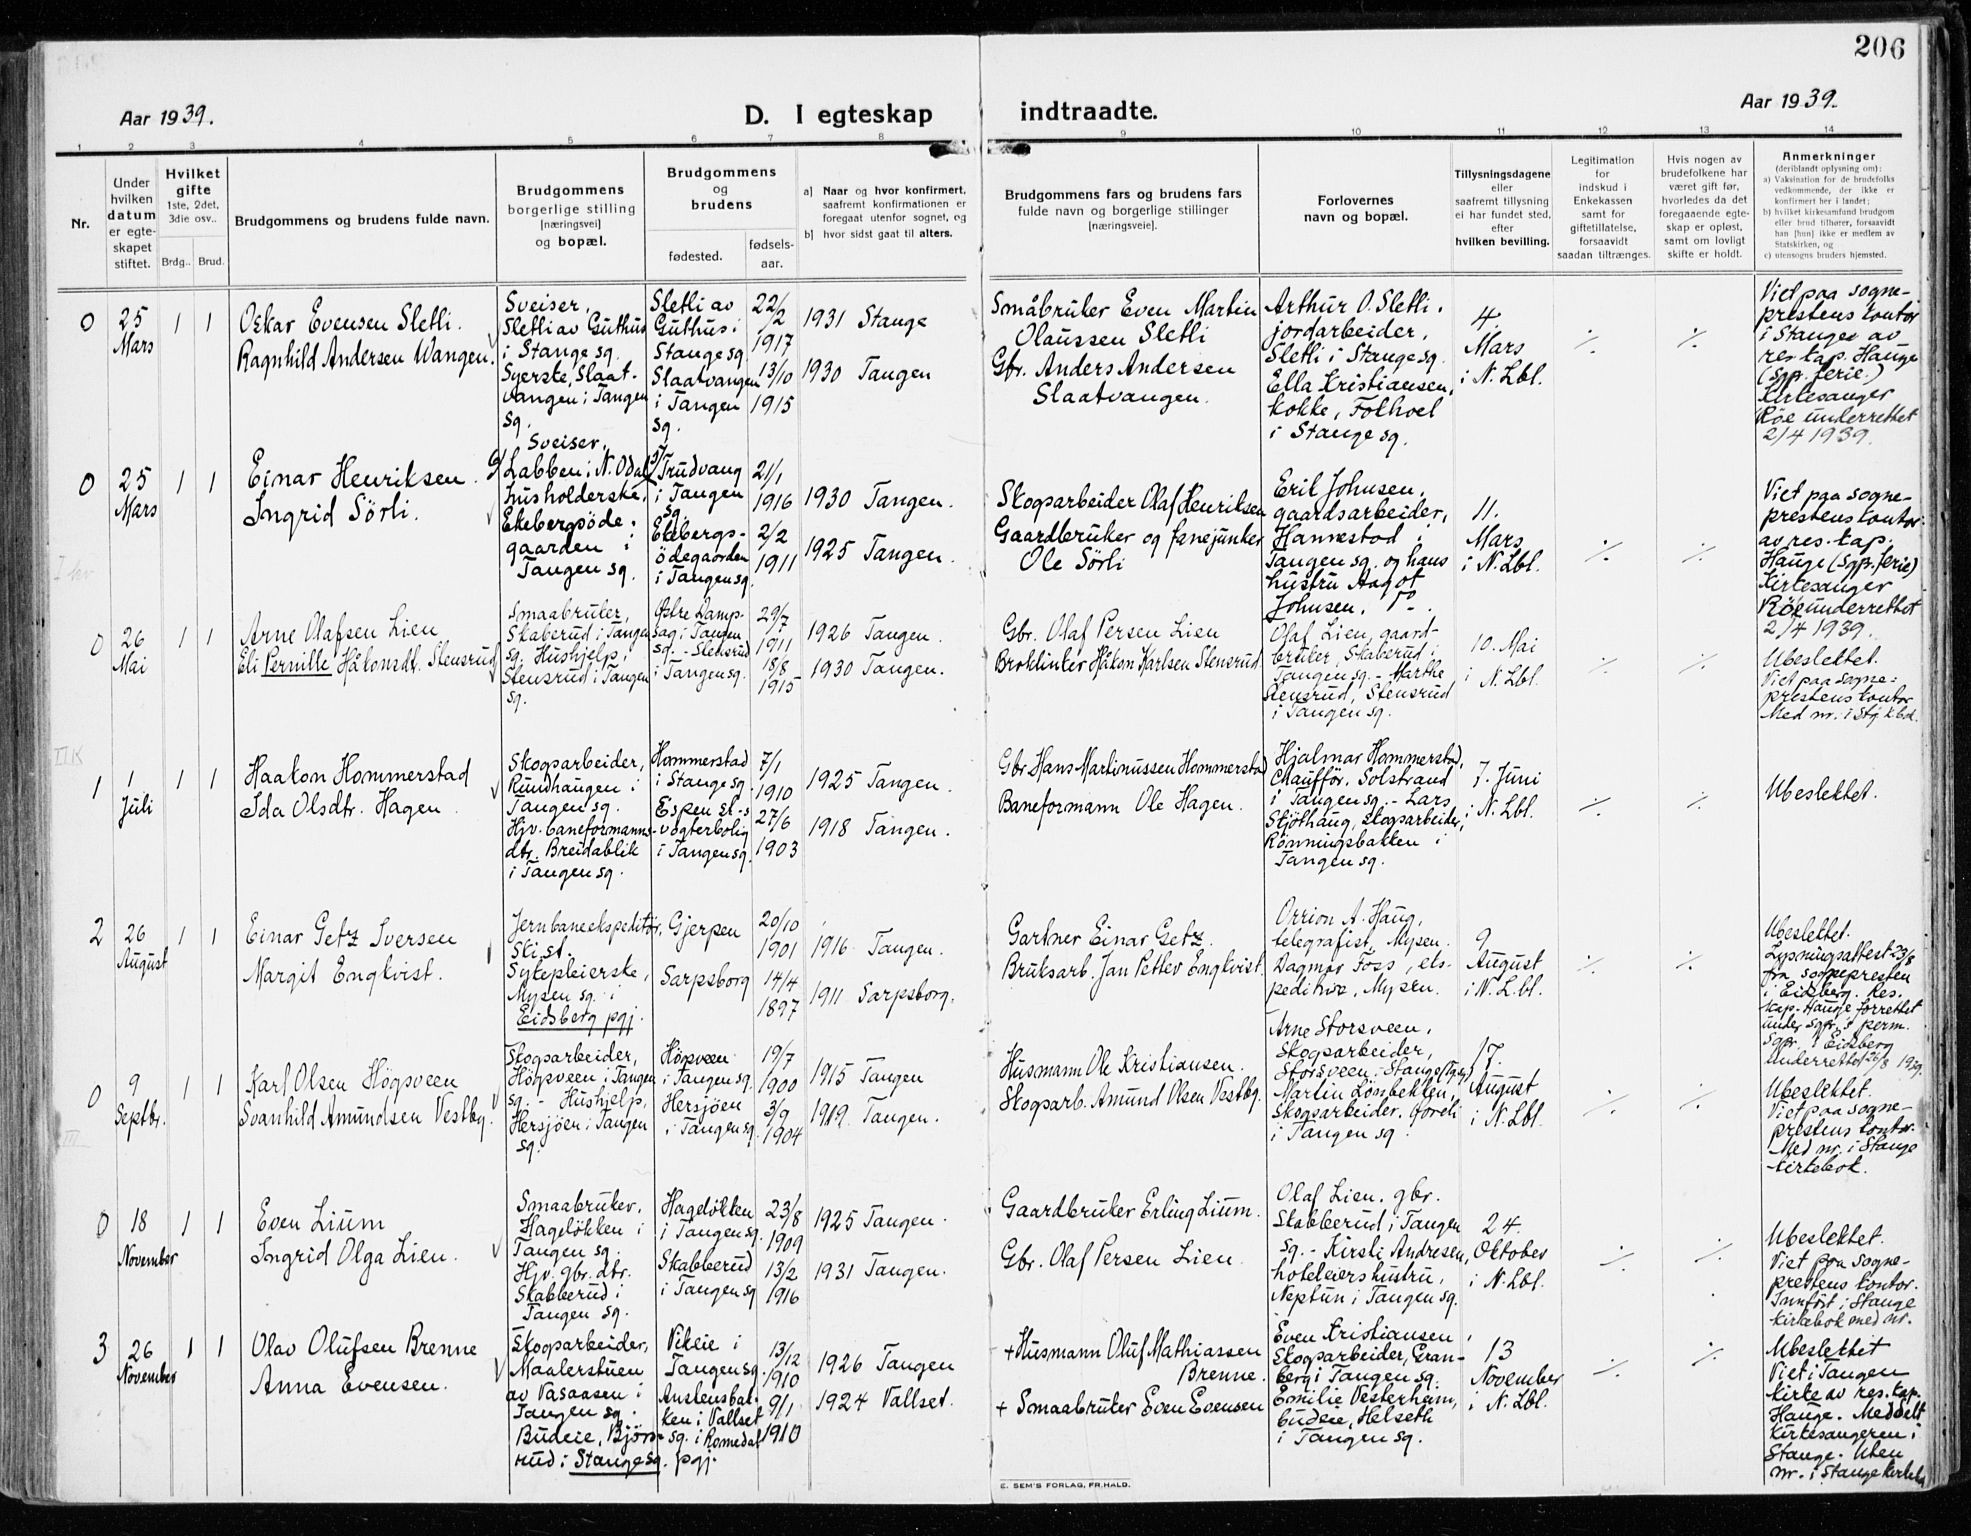 206
Aar 1939.
D. I egteskap indtraadte.
Aar 1939.
1 2 3 4 5 6 7 8 9 10 11 12 13 14
Nr.
Under
hvilken
datum
er egte-
skapet
stiftet.
Hvilket
gifte
1ste, 2det,
3die osv..
Brdg.. Brud.
Brudgommens og brudens fulde navn.
Brudgommens
borgerlige stilling
[næringsvei]
og bopæl.
Brudgommens
og
brudens
fødested.
fødsels-
aar.
a] Naar og hvor konfirmert,
saafremt konfirmationen er
foregaat utenfor sognet, og
b] hvor sidst gaat til alters.
Brudgommens fars og brudens fars
fulde navn og borgerlige stillinger
[næringsveie].
Forlovernes
navn og bopæl.
Tillysningsdagene
eller
saafremt tillysning
ei har fundet sted,
efter
hvilken bevilling.
Legitimation
for
indskud i
Enkekassen
samt for
giftetillatelse,
forsaavidt
saadan tiltrænges.
Hvis nogen av
brudefolkene har
været gift før,
hvorledes da det
foregaaende egte-
skap er opløst,
samt om lovligt
skifte er holdt.
Anmerkninger
(deriblandt oplysning om):
a) Vaksination for de brudefolks
vedkommende, der ikke er
konfirmert her i landet;
b) hvilket kirkesamfund brudgom
eller brud tilhører, forsaavidt
han [hun] ikke er medlem av
Statskirken, og
c) utensogns bruders hjemsted.
0
25
Mars
1 1
Oskar Evensen Sletli.
Ragnhild Andersen Wangen.
Sveiser,
Sletli av Guthus
i Stange sg.
Syerske, Slaat-
vangen i Tangen
sg.
Sletli av
Guthus i
Stange sg.
Slaatvangen
i Tangen
sg.
22/2
1917
13/10
1915
1931 Stange
1930 Tangen
Småbruker Even Martin
Olaussen Sletli
Gbr. Anders Andersen
Slaatvangen.
Arthur O. Sletli,
jordarbeider,
Sletli i Stange sg.
Ella Kristiansen,
kokke, Fokhoel
i Stange sg.
4.
Mars
i N. Lbl.
·/.
·/.
Viet paa sogne-
prestens kontor
i Stange av
res. kap. Hauge
(Sgpr. ferie.)
Kirkesanger
Röe underrettet
2/4 1939.
0
25
Mars
1 1
Einar Henriksen
Ingrid Sörli.
Sveiser,
Labben i N. Odal
husholderske,
Ekebergsöde-
gaarden i
Tangen sg.
Trudvang
i Tangen
sg.
Ekebergs-
ödegaarden
i Tangen sg.
21/1
1916
2/2
1911
1930 Tangen.
1925 Tangen.
Skogsarbeider Olaf Henriksen
Gaardbruker og fanejunker
Ole Sörli
Erik Johnsen,
gaardsarbeider,
Hannestad i
Tangen sg. og hans
hustru Aagot
Johnsen.
11.
Mars
i N. Lbl.
·/.
·/.
Viet paa sogne-
prestens kontor
av res. kap.
Hauge (Sgpr. ferie)
Kirkesanger
Röe underrettet
2/4 1939.
0
26
Mai
1 1
Arne Olafsen Lien
Eli Pernille Håkonsdt. Stensrud
Smaabruker,
Skaberud i Tangen
sg. Hushjelp,
Stensrud i Tangen
sg.
Östre Damp-
sag i Tangen
sg. - Stensrud
i Tangen sg.
29/7
1911
18/8
1915
1926 Tangen.
1930 Tangen.
Gbr. Olaf Persen Lien
Broklinker Håkon Karlsen Stensrud
Olaf Lien, gaard-
bruker, Skaberud i
Tangen sg. - Marthe
Stensrud, Stensrud
i Tangen sg.
10. Mai
i N. Lbl.
·/.
·/.
Ubeslektet.
Viet paa sogne-
prestens kontor
Med nr. i Stg. k.bok.
1
1
Juli
1 1
Haakon Hommerstad
Ida Olsdtr. Hagen.
Skogsarbeider,
Rundhaugen i
Tangen sg.
Hjv. baneformanns-
dtr. Breidablik
i Tangen sg.
Hommerstad
i Stange sg.
Espen st.-s
vogterbolig
i Tangen sg.
7/1
1910
27/6
1903
1925 Tangen.
1918 Tangen.
Gbr. Hans Martinussen Hommerstad
Baneformann Ole Hagen.
Hjalmar Hommerstad,
Chaufför, Solstrand
i Tangen sg. - Lars
Stjöthaug, skogsarbeider,
Rönningsbakken i
Tangen sg.
7. Juni
i N. Lbl.
·/.
·/.
Ubeslektet.
2
26
August
1 1
Einar Getz Iversen
Margit Engkvist.
Jernbaneekspeditör,
Ski st.
Sykepleierske,
Mysen sg. i
Eidsberg pgj.
Gjerpen
Sarpsborg
20/10
1901
14/4
1897
1916 Tangen.
1911 Sarpsborg.
Gartner Einar Getz.
Bruksarb. Jan Petter Engkvist.
Orrion A. Haug,
telegrafist, Mysen.
Dagmar Foss, eks-
peditrise, Mysen.
9
August
i N. Lbl.
·/.
·/.
Ubeslektet.
Lysningsattest 23/8
fra sognepresten
i Eidsberg. Res.
kap. Hauge forrettet
under sgpr.'s perm.
Sgpr. i Eidsberg
underrettet 26/8 1939.
0
9
Septbr.
1 1
Karl Olsen Högsveen
Svanhild Amundsen Vestbg.
Skogsarbeider,
Högsveen i Tangen
sg. - Hushjelp,
Hersjöen i Tangen
sg.
Högsveen
i Tangen sg.
Hersjöen
i Tangen sg.
19/7
1900
3/9
1904
1915 Tangen
1919 Tangen.
Husmann Ole Kristiansen.
Skogsarb. Amund Olsen Vestbg.
Arne Storsveen,
Skogsarbeider,
Storsveen i Stange
Martin Lönbekken,
Skogsarbeider,
i Tangen sg.
17.
August
i N. Lbl.
·/.
·/.
Ubeslektet.
Viet paa sogne-
prestens kontor.
Med nr. i Stange
kirkebok.
0
18
November
1 1
Even Lium
Ingrid Olga Lien.
Smaabruker,
Hagelökken i
Tangen sg.
Hjv. gbr. dtr.
Skabberud i
Tangen sg.
Hagelökken
i Tangen sg.
Skabberud
i Tangen sg
23/8
1909
13/2
1916
1925 Tangen.
1931 Tangen.
Gaardbruker Erling Lium.
Gbr. Olaf Persen Lien
Olaf Lien, gbr.
Skabberud i Tangen
sg. - Kirsti Andresen,
hoteleiers hustru,
Neptun i Tangen sg.
24.
Oktober
i N. Lbl.
·/.
·/.
Ubeslektet.
Viet paa sogne-
prestens kontor.
Innfört i Stange
kirkebok med nr.
3
26
November
1 1
Olav Olufsen Brenne
Anna Evensen.
Skogsarbeider,
Maalerstuen
av Vasaasen i
Tangen sg.
Budeie, Björn-
rud i Stange sg.
Vikeie i
Tangen sg.
Anstensbak-
ken i Vallset
sg. i Romedal
pgj.
13/12
1910
9/1
1910
1926 Tangen
1924 Vallset.
+ Husmann Oluf Mathiassen
Brenne.
+ Smaabruker Even Evensen
Even Kristiansen,
Skogsarbeider, Gran-
berg i Tangen sg.
Emilie Vesterheim,
budeie, Helseth
i Tangen sg.
13
November
i N. Lbl.
·/.
·/.
Ubeslektet
Viet i Tangen
kirke av res. kap.
Hauge. Meddelt
kirkesangeren i
Stange. Uten
nr. i Stange kirkebok
E. SEM'S FORLAG, FR.HALD.